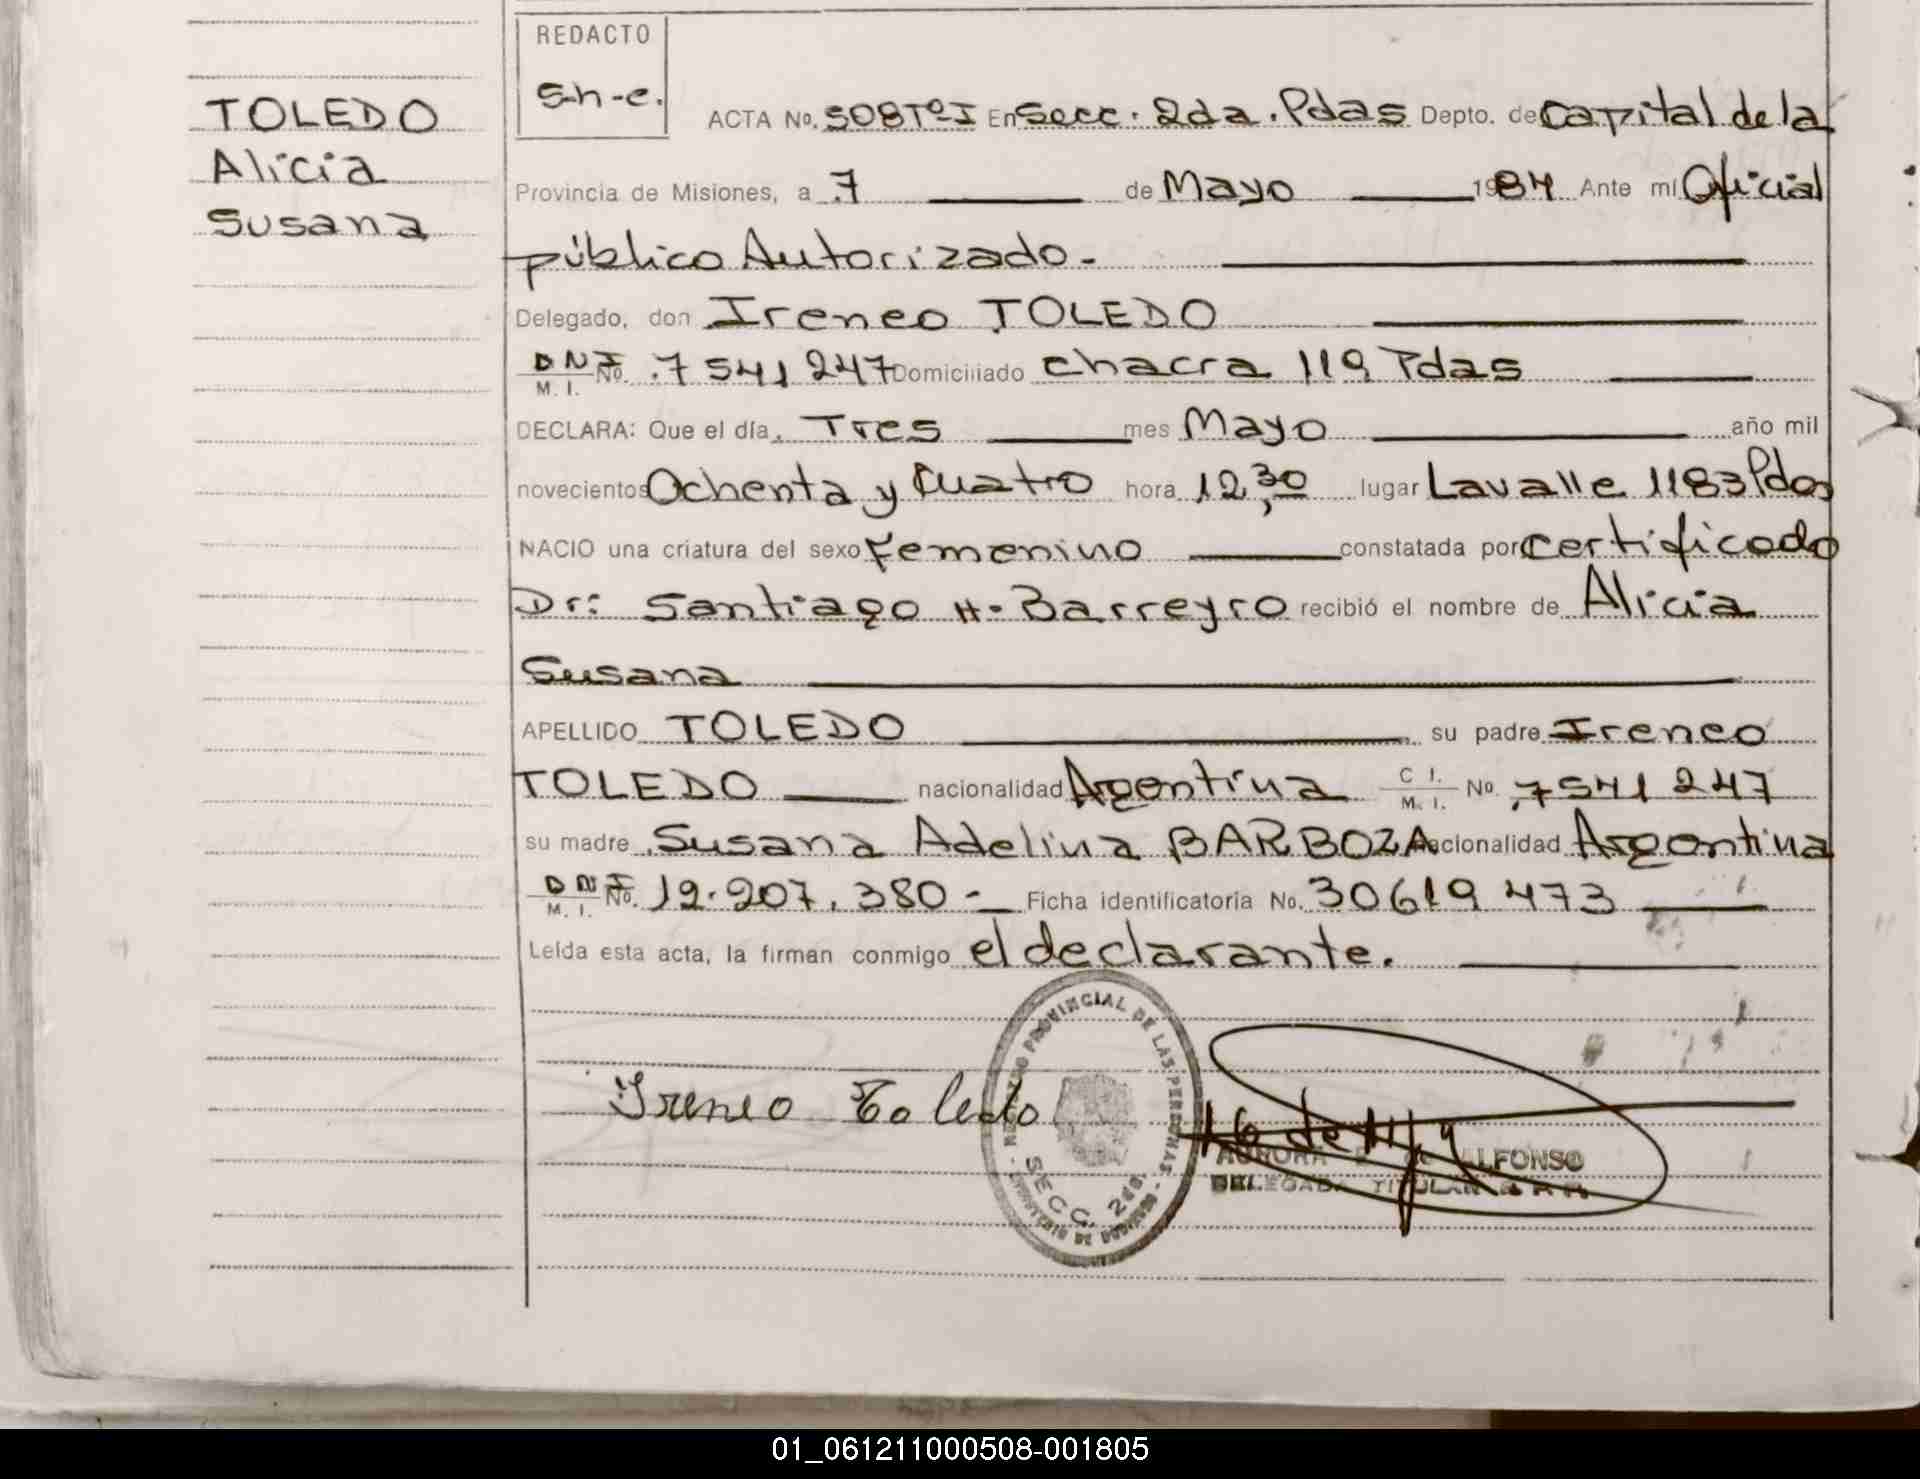 REDACTO
S-h-e.
TOLEDO
Alicia
Susana
ACTA No. 508 Tº I En Secc. 2da. Pdas Depto. de Capital de la
Provincia de Misiones, a 7 de Mayo 1984 Ante mí Oficial
público Autorizado.-
Delegado, don Ireneo TOLEDO
DNI M. I. No. 7541247 Domiciliado chacra 119 Pdas
DECLARA: Que el día, Tres mes Mayo año mil
novecientos Ochenta y Cuatro hora 12,30 lugar Lavalle 1183 Pdas
NACIO una criatura del sexo Femenino constatada por Certificado
Dr: Santiago H. Barreyro recibió el nombre de Alicia
Susana
APELLIDO TOLEDO su padre Ireneo
TOLEDO nacionalidad Argentina C I. M. I. No. 7541247
su madre Susana Adelina BARBOZA nacionalidad Argentina
DNI M. I. No. 12.207.380- Ficha identificatoria No. 30619473
Leída esta acta, la firman conmigo el declarante.
Ireneo Toledo
REGISTRO PROVINCIAL DE LAS PERSONAS
SECC. 2da.
AURORA ALFONSO
DELEGADA TITULAR
01_061211000508-001805